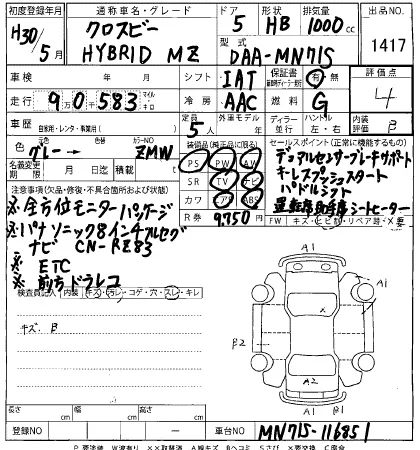 初度登録年月 通称車名・グレード ドア 形状 排気量 出品NO
H30年 5月 クロスビー HYBRID MZ 5 HB 1000cc
型式 DAA-MN71S 1417
車検 年 月 シフト IAT 保証書 有 無 評価点
走行 90千583 マイル キロ 冷房 AAC 燃料 G 4
車歴 自家用・レンタ・事業用( ) 定員 5人 外車モデル 年 ディーラー 並行 ハンドル 左・右 内装 評価 B
色 グレー → カラーNO ZMW 装備品(純正品に限る) セールスポイント(正常に機能するもの)
名義変更期限 月 日 迄 積載 PS PW AW デュアルセンサーブレーキサポート
注意事項(欠品・修復・不具合箇所および状態) SR TV ナビ キーレスプッシュスタート
※全方位モニターパッケージ カワ エアB ABS パドルシフト
※パナソニック8インチフルセグ R券 9,750円 運転席助手席シートヒーター
ナビ CN-RE83 FW キズ・ヒビ・リペア済・要×
※ETC
※前方ドラレコ
検査員記入 内装 キズ・汚レ・コゲ・穴・スレ・キレ
キズ.B
A1
A1
B2
×
A2
A1 B1
長さ cm 幅 cm 高さ cm
登録NO 車台NO MN71S-116851